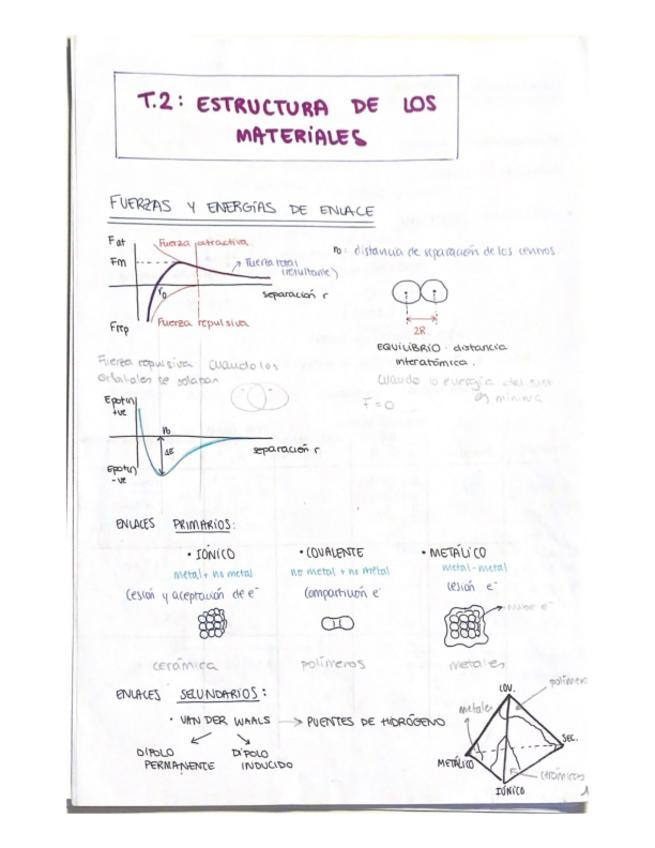 T.2: ESTRUCTURA DE LOS
MATERIALES
FUERZAS Y ENERGÍAS DE ENLACE
Fat
Fuerza atractiva
Fm
Fuerza total
(resultante)
r₀
separación r
Frep
Fuerza repulsiva
r₀: distancia de separación de los centros
2R
EQUILIBRIO: distancia
interatómica.
Cuando la energía del sist
es mínima
F=0
Fuerza repulsiva cuando los
orbitales se solapan
Epot(r)
+ve
r₀
ΔE
separación r
Epot(r)
-ve
ENLACES PRIMARIOS:
• IÓNICO • COVALENTE • METÁLICO
metal + no metal no metal + no metal metal-metal
Cesión y aceptación de e⁻ Compartición e⁻ cesión e⁻
nube e⁻
cerámica polímeros metales
ENLACES SECUNDARIOS:
• VAN DER WAALS → PUENTES DE HIDRÓGENO
DIPOLO DIPOLO
PERMANENTE INDUCIDO
COV.
metales
SEC.
METÁLICO
cerámicos
IÓNICO
1